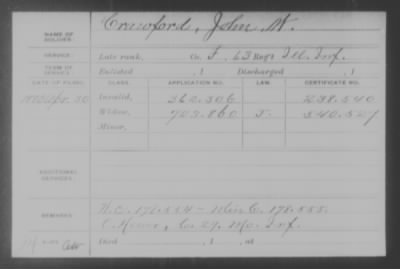 NAME OF SOLDIER: Crawford, John W.
SERVICE: Late rank, Co. F, 63 Reg't Ill. Inf.
TERM OF SERVICE: Enlisted , 1 Discharged , 1
DATE OF FILING. CLASS. APPLICATION NO. LAW. CERTIFICATE NO.
Apr. 30 Invalid, 362.306 238.540
Widow, 723.860 540.527
Minor,
ADDITIONAL SERVICES:
REMARKS: 178.555.
Co. 27, Mo. Inf.
Died , 1 , at